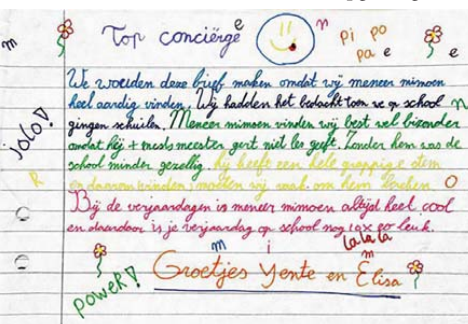 Top conciërge
e n pi po pa e e
m
We wouden deze brief maken omdat wij meneer mimoen
heel aardig vinden. Wij hadden het bedacht toen we op school
n
jolo!
gingen schuilen. Meneer mimoen vinden wij best wel bizonder
omdat hij + mesls meester gert niet les geeft. Zonder hem was de
school minder gezellig. hij heeft een hele grappige stem
R
en daarom moeten wij vaak om hem lachen. O
Bij de verjaardagen is meneer mimoen altijd heel cool
en daardoor is je verjaardag op school nog 10x zo leuk.
m i lalala
m
Groetjes Yente en Elisa
poweR!